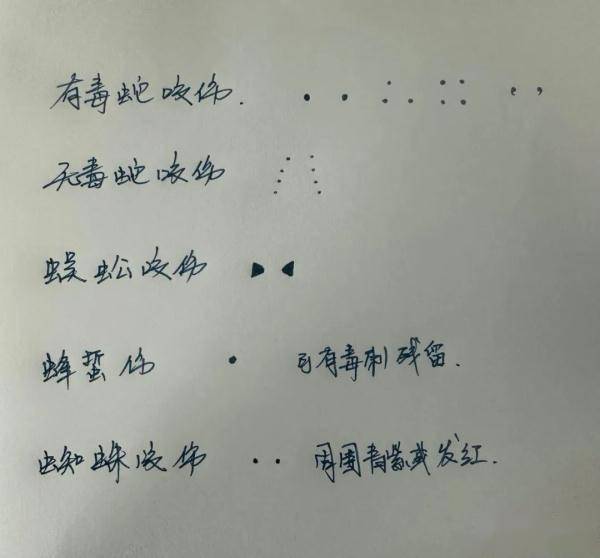 有毒蛇咬伤.
无毒蛇咬伤
蜈蚣咬伤
蜂蜇伤 可有毒刺残留.
蜘蛛咬伤 周围青紫或发红.